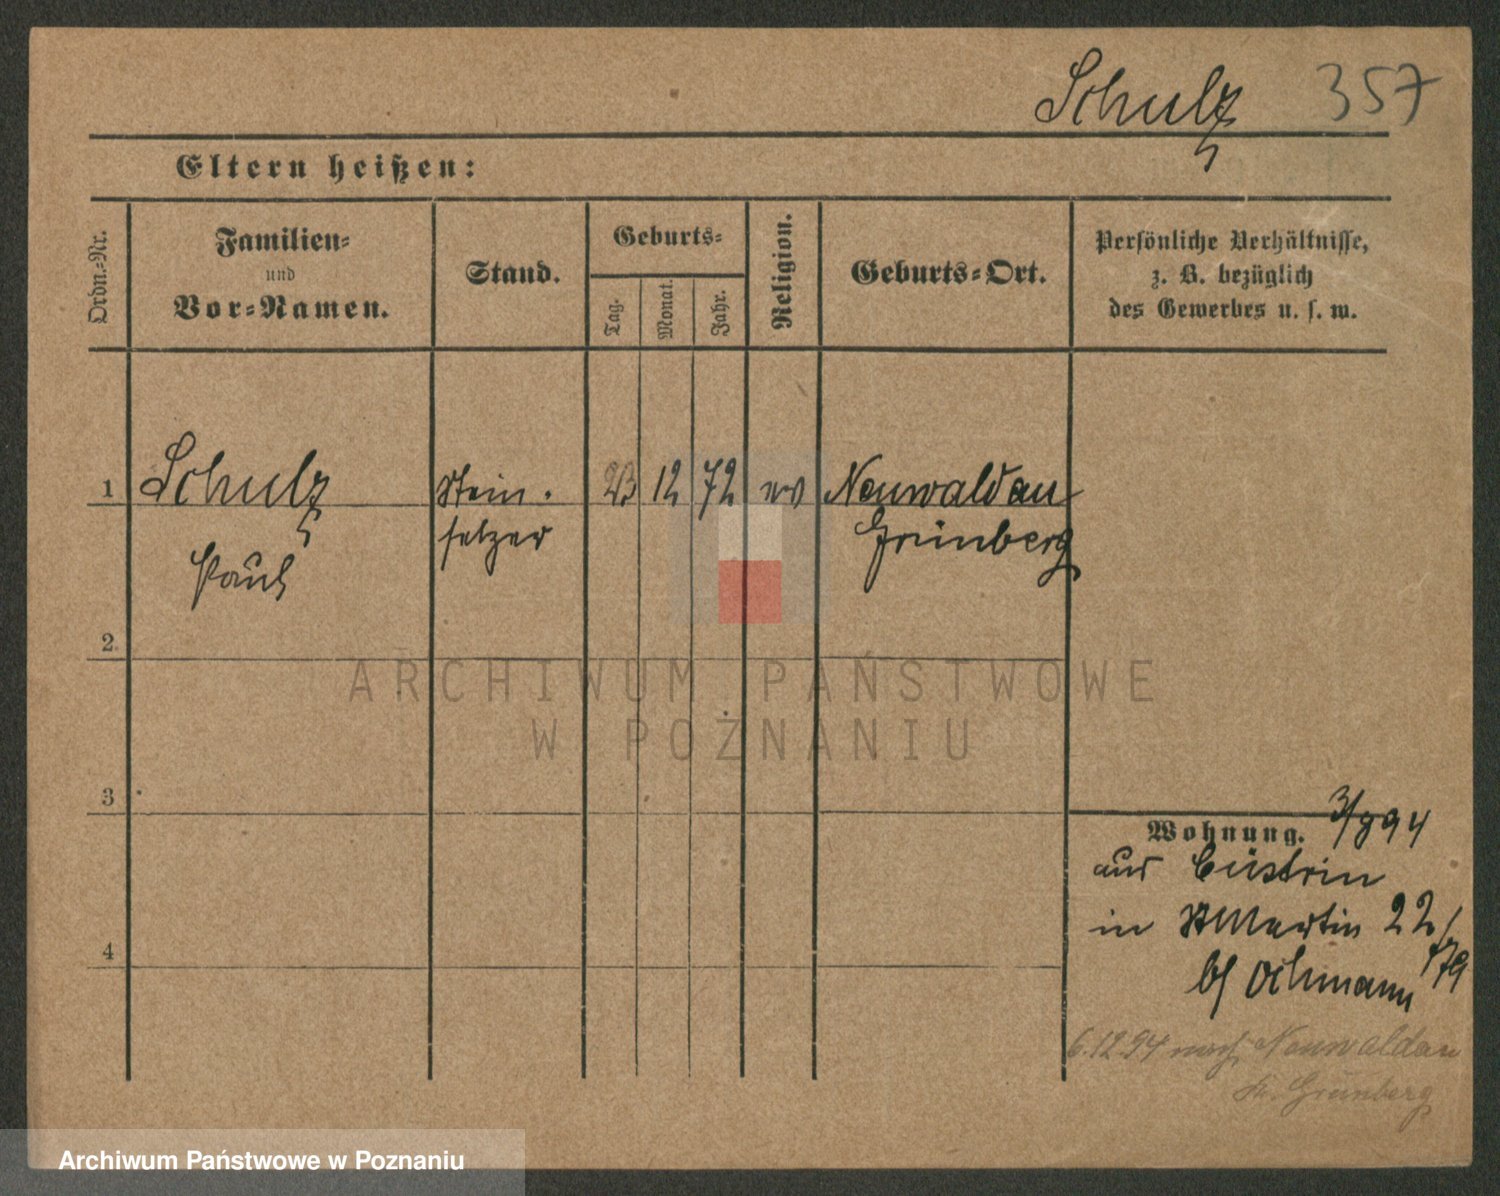 Schulz 357
Eltern heißen:
Ordn.-Nr.
Familien-
und
Vor-Namen.
Stand.
Geburts-
Tag.
Monat.
Jahr.
Religion.
Geburts-Ort.
Persönliche Verhältnisse,
z. B. bezüglich
des Gewerbes u. s. w.
1 Schulz Stein- 23 12 72 ev Neuwaldau
setzer Grünberg
Paul
2
ARCHIWUM PAŃSTWOWE
W POZNANIU
3
Wohnung. 3/8 94
aus Cüstrin
in St Martin 22/
b/
4
6.12.94 nach Neuwaldau
Kr. Grünberg
Archiwum Państwowe w Poznaniu